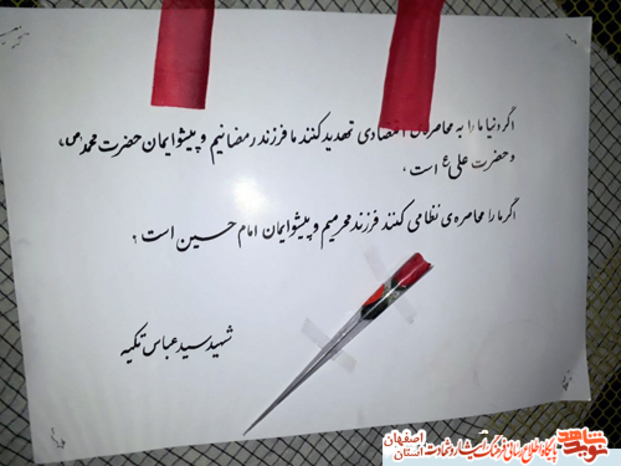 اگر دنیا ما را به محاصره‌ی اقتصادی تهدید کنند ما فرزند رمضانیم و پیشوایمان حضرت محمد ص،
و حضرت علی ع است.
اگر ما را محاصره‌ی نظامی کنند فرزند محرمیم و پیشوایمان امام حسین است؟
شهید سید عباس تکیه
نوید شاهد
پایگاه اطلاع رسانی فرهنگ ایثار و شهادت
استان اصفهان